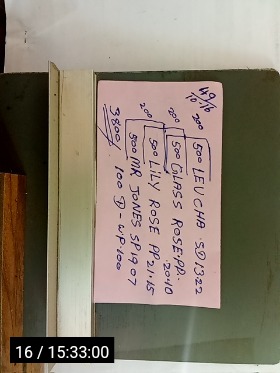 49/16
10
200 500 LEUCHA SD1322
200 500 GLASS ROSE.PD.
20.10
200 500 LILY ROSE PP21.15
500 MR JONES SP1907
3800/ 100 D - W.P.100
16 / 15:33:00